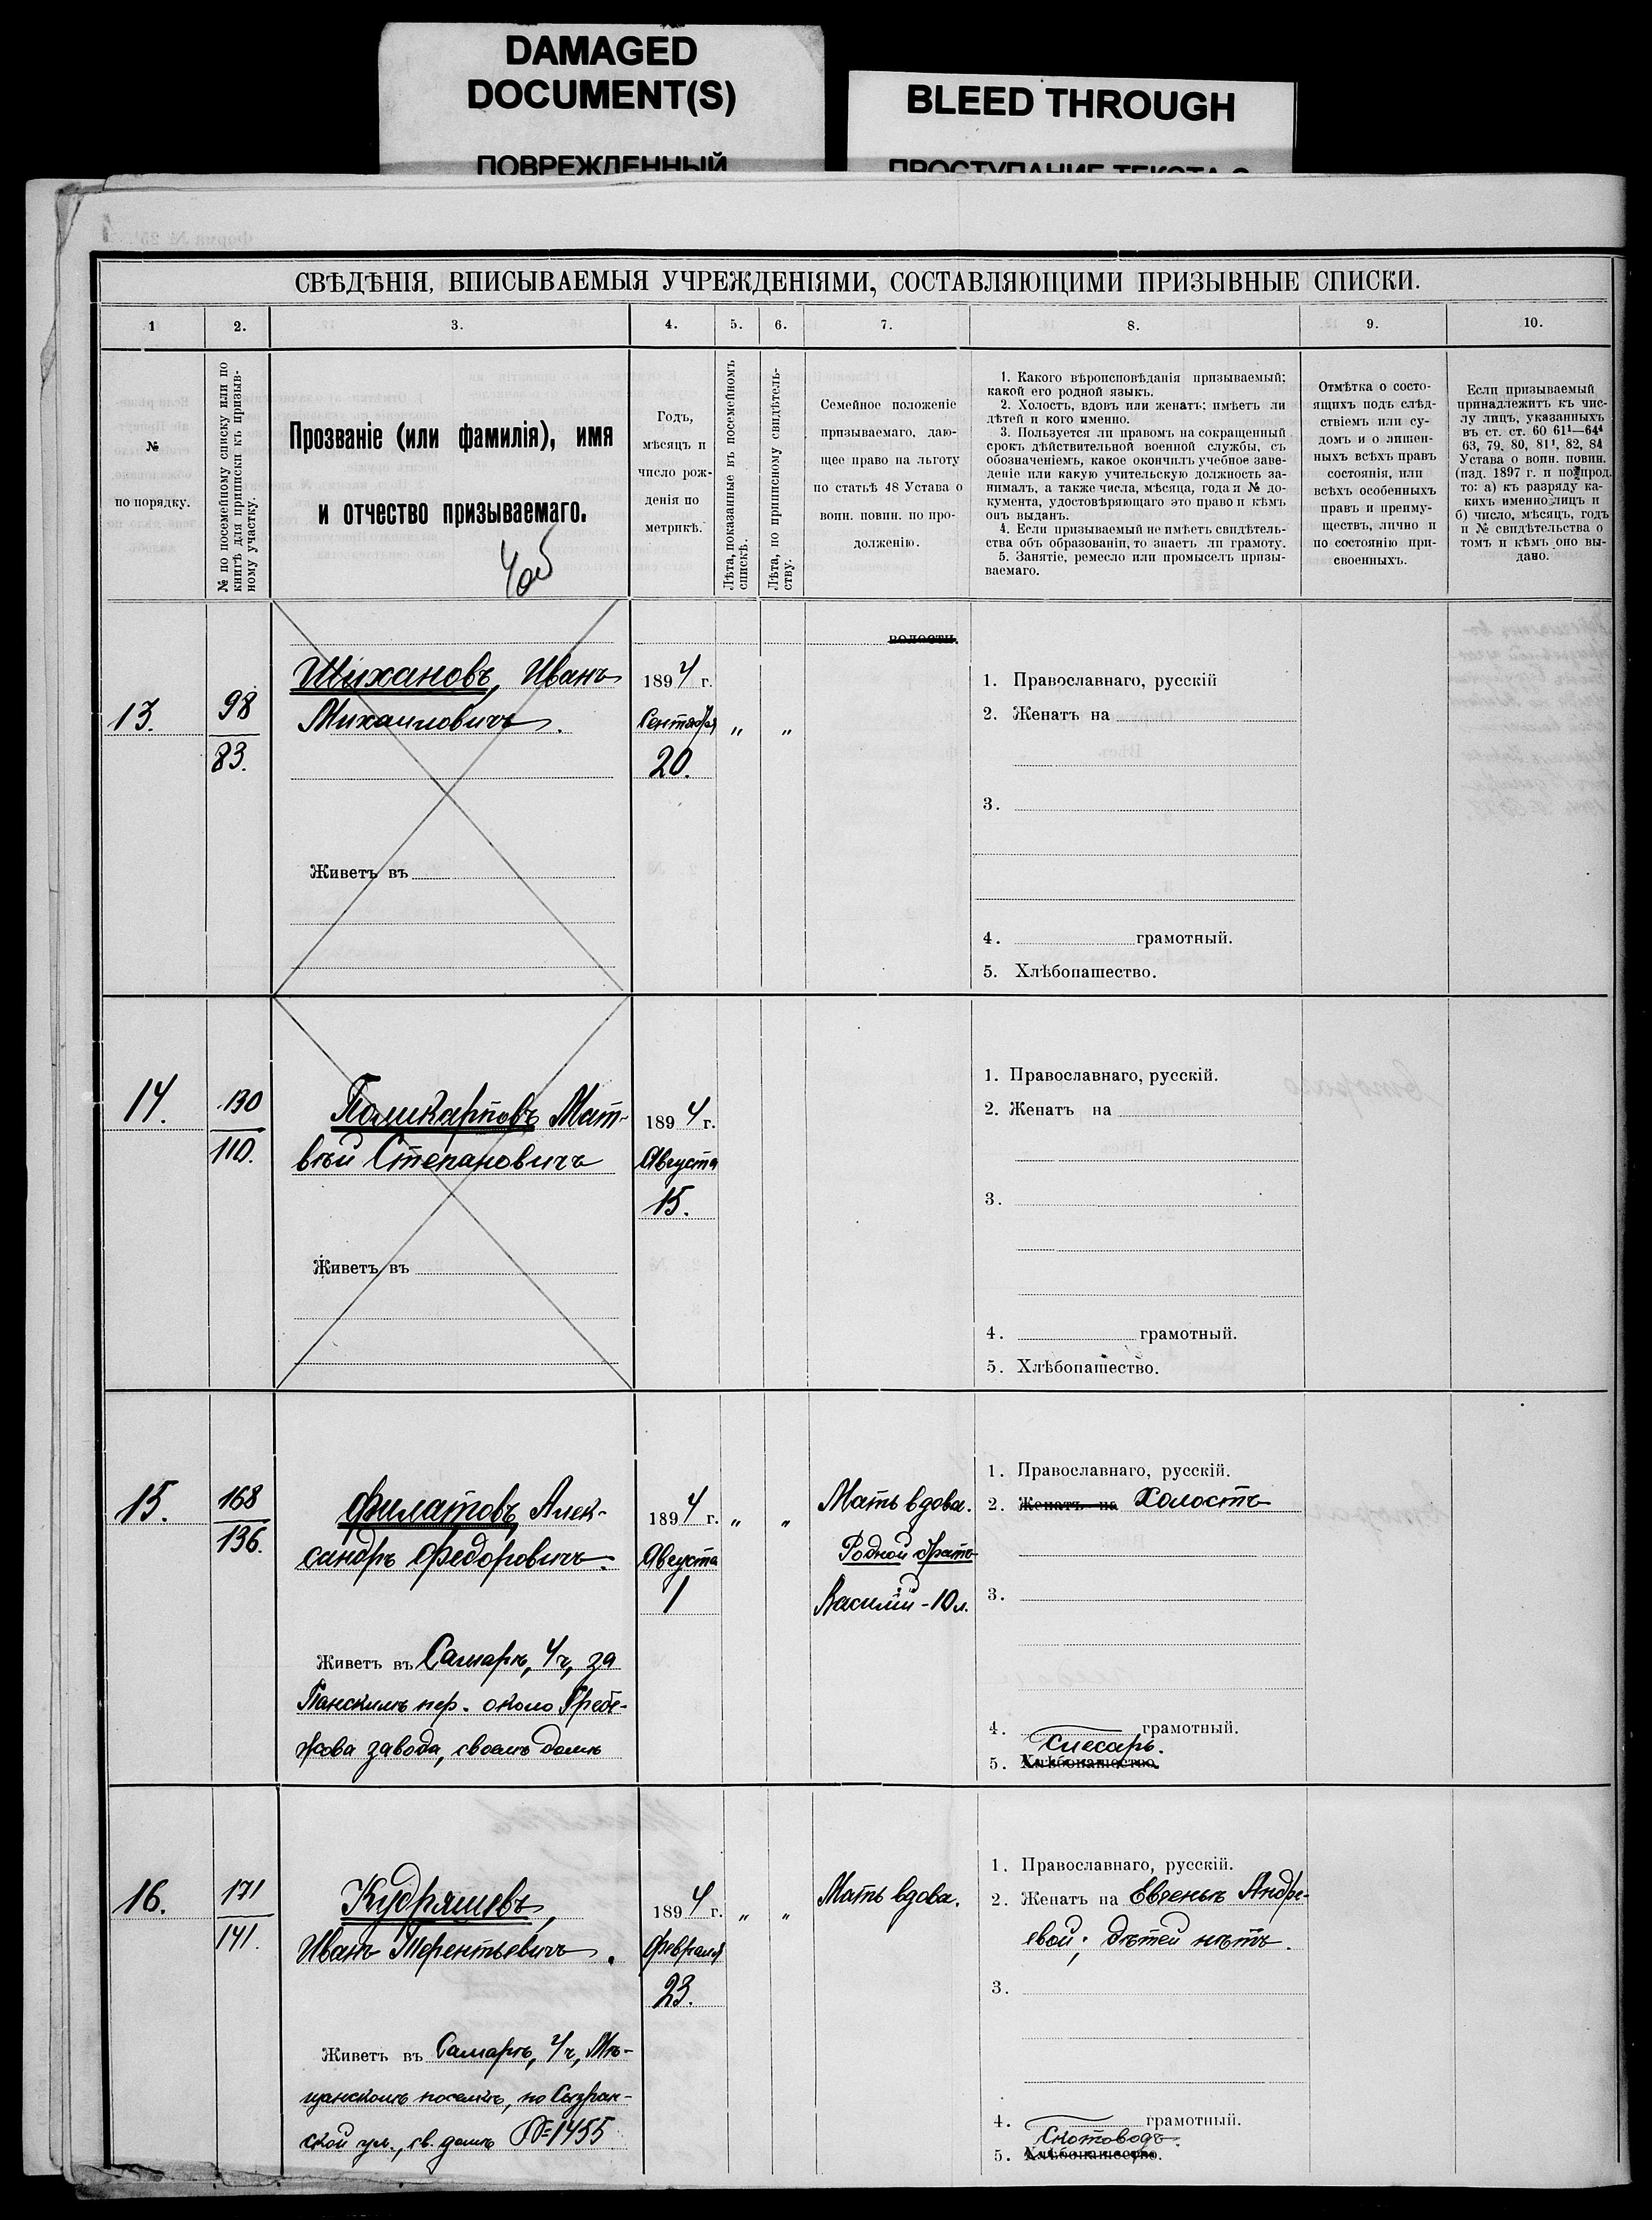 DAMAGED
DOCUMENT(S)
ПОВРЕЖДЕННЫЙ
BLEED THROUGH
ПРОСТУПАНИЕ ТЕКСТА С
СВѢДѢНІЯ, ВПИСЫВАЕМЫЯ УЧРЕЖДЕНІЯМИ, СОСТАВЛЯЮЩИМИ ПРИЗЫВНЫЕ СПИСКИ.
1 2. 3. 4. 5. 6. 7. 8. 9. 10.
№
по порядку.
№ по посемейному списку или по
книгѣ для приписки къ призыв-
ному участку.
Прозваніе (или фамилія), имя
и отчество призываемаго.
Годъ,
мѣсяцъ и
число рож-
денія по
метрикѣ.
Лѣта, показанные въ посемейномъ
спискѣ.
Лѣта, по приписному свидѣтель-
ству.
Семейное положеніе
призываемаго, даю-
щее право на льготу
по статьѣ 48 Устава о
воин. повин. по про-
долженію.
1. Какого вѣроисповѣданія призываемый;
какой его родной языкъ.
2. Холостъ, вдовъ или женатъ; имѣетъ ли
дѣтей и кого именно.
3. Пользуется ли правомъ на сокращенный
срокъ дѣйствительной военной службы, съ
обозначеніемъ, какое окончилъ учебное заве-
деніе или какую учительскую должность за-
нималъ, а также числа, мѣсяца, года и № до-
кумента, удостовѣряющаго это право и кѣмъ
онъ выданъ.
4. Если призываемый не имѣетъ свидѣтель-
ства объ образованіи, то знаетъ ли грамоту.
5. Занятіе, ремесло или промыселъ призы-
ваемаго.
Отмѣтка о состо-
ящихъ подъ слѣд-
ствіемъ или су-
домъ и о лишен-
ныхъ всѣхъ правъ
состоянія, или
всѣхъ особенныхъ
правъ и преиму-
ществъ, лично и
по состоянію при-
своенныхъ.
Если призываемый
принадлежитъ къ чис-
лу лицъ, указанныхъ
въ ст. ст. 60 61¹—64⁴
63, 79, 80, 81¹, 82, 84
Устава о воин. повин.
(изд. 1897 г. и по прод.
то: а) къ разряду ка-
кихъ именно лицъ и
б) число, мѣсяцъ, годъ
и № свидѣтельства о
томъ и кѣмъ оно вы-
дано.
волости.
13.
98
83.
Шихановъ, Иванъ
Михаиловичъ.
Живетъ въ
1894 г.
Сентября
20.
„ „
1. Православнаго, русскій
2. Женатъ на
3.
4. грамотный.
5. Хлѣбопашество.
14.
130
110.
Поликарповъ Мат-
вѣй Степановичъ
Живетъ въ
1894 г.
Августа
15.
1. Православнаго, русскій.
2. Женатъ на
3.
4. грамотный.
5. Хлѣбопашество.
15.
168
136.
Филатовъ Алек-
сандръ Федоровичъ.
Живетъ въ Самарѣ, 4 ч, за
Панскимъ пер. около Гребе-
жова завода, своемъ домѣ
1894 г.
Августа
1
„ „
Мать вдова.
Родной братъ
Василій - 10 л.
1. Православнаго, русскій.
2. Женатъ на Холостъ
3.
4. грамотный.
Слесарь.
5. Хлѣбопашество.
16.
171
141.
Кудряшевъ,
Иванъ Терентьевичъ.
Живетъ въ Самарѣ, 4 ч, Мѣ-
щанскомъ поселкѣ, по Сызран-
ской ул., св. домъ № 1455
1894 г.
Февраля
23.
„ „
Мать вдова.
1. Православнаго, русскій.
2. Женатъ на Евгеньѣ Андре-
евой; дѣтей нѣтъ.
3.
4. грамотный.
Скотоводъ.
5. Хлѣбопашество.